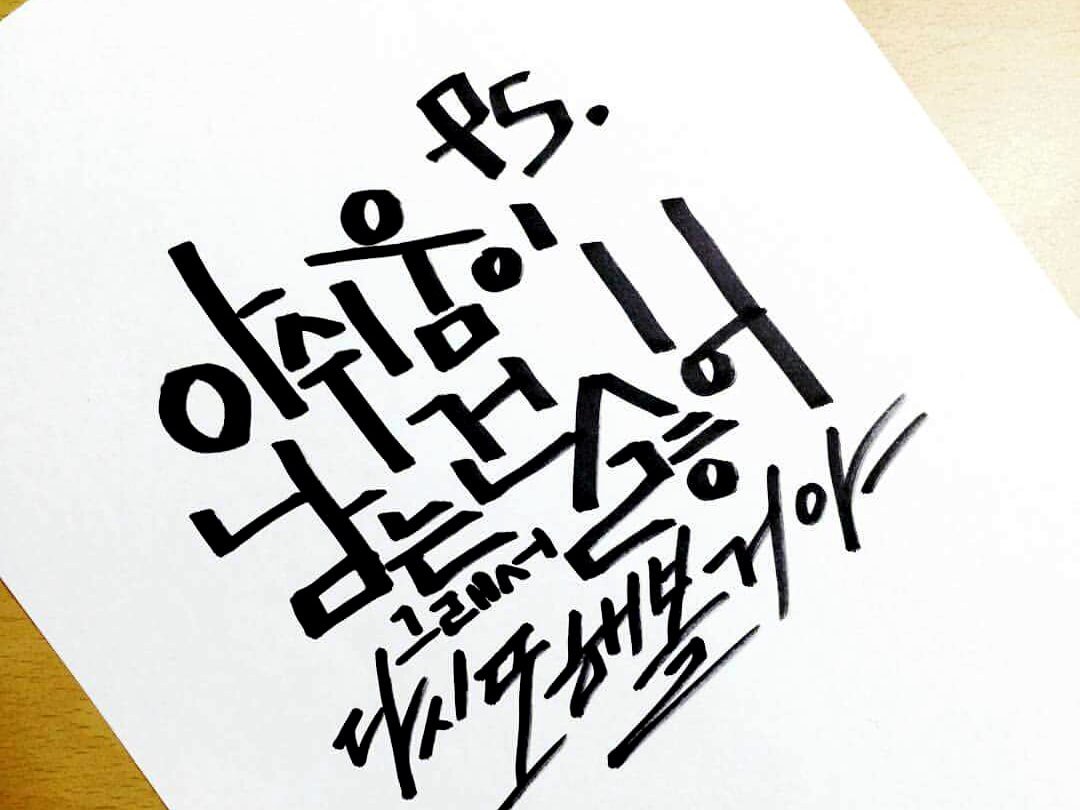 PS.
아쉬움이
남는건 싫어
그래서
다시 또 해볼거야